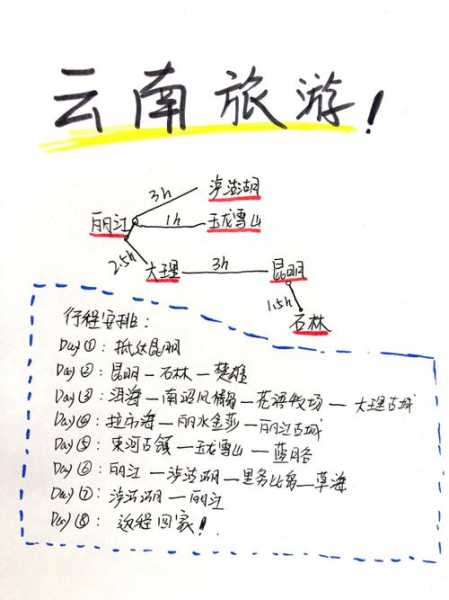 云南旅游!
3h
泸沽湖
丽江 1h 玉龙雪山
2.5h 大理 3h 昆明
1.5h
石林
行程安排:
Day①: 抵达昆明
Day②: 昆明—石林—楚雄
Day③: 洱海—南诏风情岛—花语牧场—大理古城
Day④: 拉市海—丽水金莎—丽江古城
Day⑤: 束河古镇—玉龙雪山—蓝月谷
Day⑥: 丽江—泸沽湖—里务比岛—草海
Day⑦: 泸沽湖—丽江
Day⑧: 返程回家!